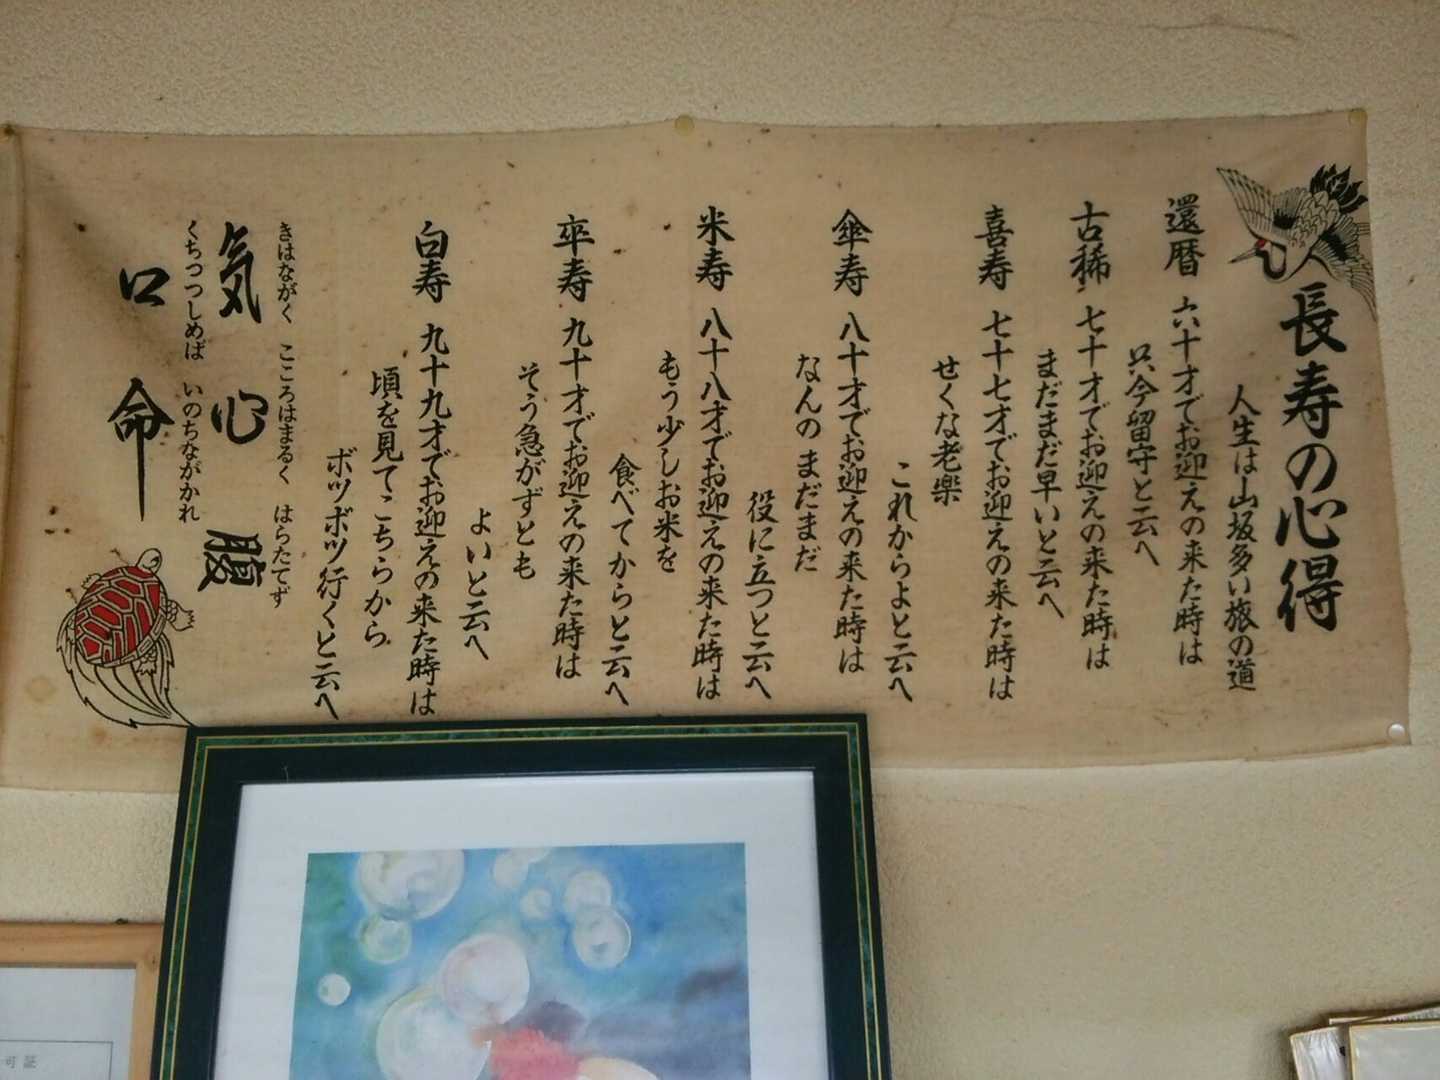 長寿の心得
人生は山坂多い旅の道
還暦 六十才でお迎えの来た時は
只今留守と云へ
古稀 七十才でお迎えの来た時は
まだまだ早いと云へ
喜寿 七十七才でお迎えの来た時は
せくな老楽
これからよと云へ
傘寿 八十才でお迎えの来た時は
なんのまだまだ
役に立つと云へ
米寿 八十八才でお迎えの来た時は
もう少しお米を
食べてからと云へ
卒寿 九十才でお迎えの来た時は
そう急がずとも
よいと云へ
白寿 九十九才でお迎えの来た時は
頃を見てこちらから
ボツボツ行くと云へ
きはながく こころはまるく はらたてず
気 心 腹
くちつつしめば いのちながかれ
口 命
可証